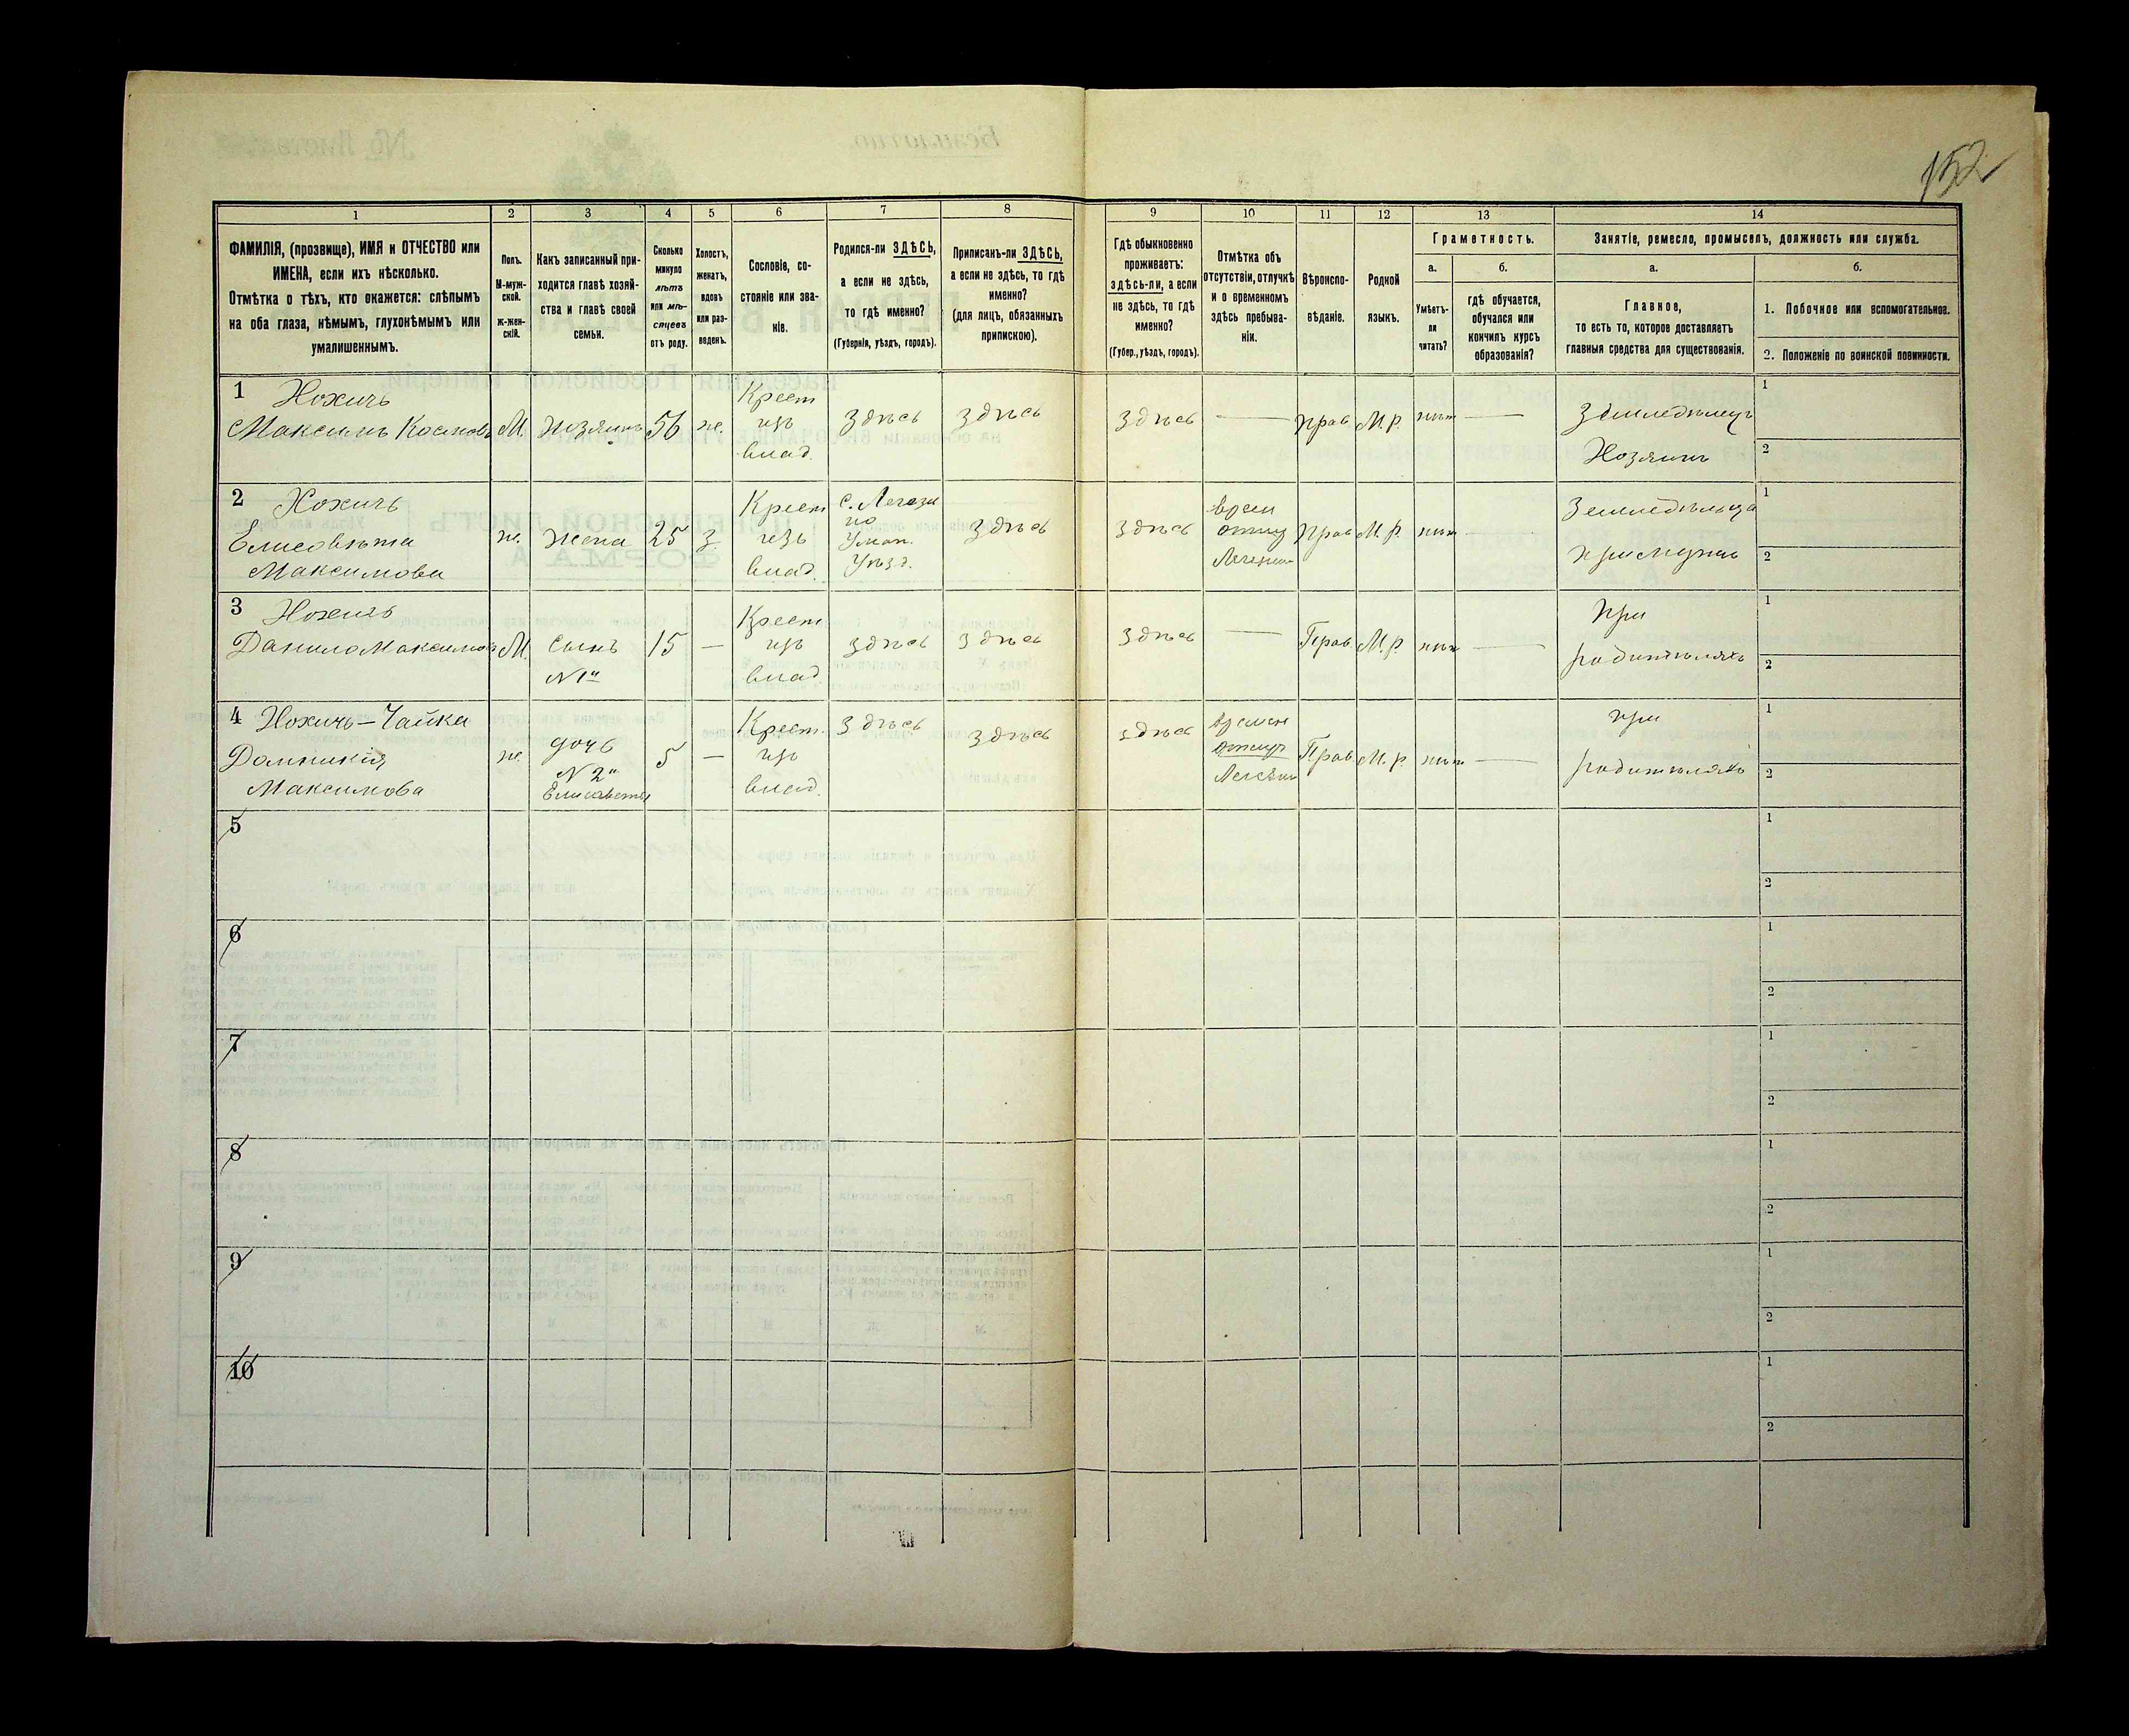 152
1 2 3 4 5 6 7 8 9 10 11 12 13 14
ФАМИЛІЯ, (прозвище), ИМЯ и ОТЧЕСТВО или
ИМЕНА, если ихъ нѣсколько.
Отмѣтка о тѣхъ, кто окажется: слѣпымъ
на оба глаза, нѣмымъ, глухонѣмымъ или
умалишеннымъ.
Полъ.
М-муж-
ской.
Ж-жен-
скій.
Какъ записанный при-
ходится главѣ хозяй-
ства и главѣ своей
семьи.
Сколько
минуло
лѣтъ
или мѣ-
сяцевъ
отъ роду.
Холостъ,
женатъ,
вдовъ
или раз-
веденъ.
Сословіе, со-
стояніе или зва-
ніе.
Родился-ли ЗДѢСЬ,
а если не здѣсь,
то гдѣ именно?
(Губернія, уѣздъ, городъ).
Приписанъ-ли ЗДѢСЬ,
а если не здѣсь, то гдѣ
именно?
(для лицъ, обязанныхъ
припискою).
Гдѣ обыкновенно
проживаетъ:
здѣсь-ли, а если
не здѣсь, то гдѣ
именно?
(Губер., уѣздъ, городъ).
Отмѣтка объ
отсутствіи, отлучкѣ
и о временномъ
здѣсь пребыва-
ніи.
Вѣроиспо-
вѣданіе.
Родной
языкъ.
Грамотность.
а.
Умѣетъ-
ли
читать?
б.
гдѣ обучается,
обучался или
кончилъ курсъ
образованія?
Занятіе, ремесло, промыселъ, должность или служба.
а.
Главное,
то есть то, которое доставляетъ
главныя средства для существованія.
б.
1. Побочное или вспомогательное.
2. Положеніе по воинской повинности.
1 Хохичъ
Максимъ
М.
Хозяинъ
56
ж.
Крест
изъ
влад.
здѣсь
здѣсь
здѣсь
—
прав
М.р.
нѣт
—
Хозяинъ
1
2
2 Хохичъ
Елисовѣта
Максимова
ж.
Жена
25
з.
Крест
изъ
влад.
Уман.
Уѣзд.
здѣсь
здѣсь
прав
М.р.
нѣт
—
1
2
3 Хохичъ
Данило Максимов
М.
Сынъ
№ 1й
15
—
Крест
изъ
влад
здѣсь
здѣсь
здѣсь
—
Прав
М.р.
нѣт
—
При
родителяхъ
1
2
4 Хохичъ—Чайка
Домникія
Максимова
ж.
дочь
№ 2й
Елисаветы
5
—
Крест.
изъ
влад.
здѣсь
здѣсь
здѣсь
Прав
М.р.
нѣт
—
при
родителяхъ
1
2
5
1
2
6
1
2
7
1
2
8
1
2
9
1
2
10
1
2